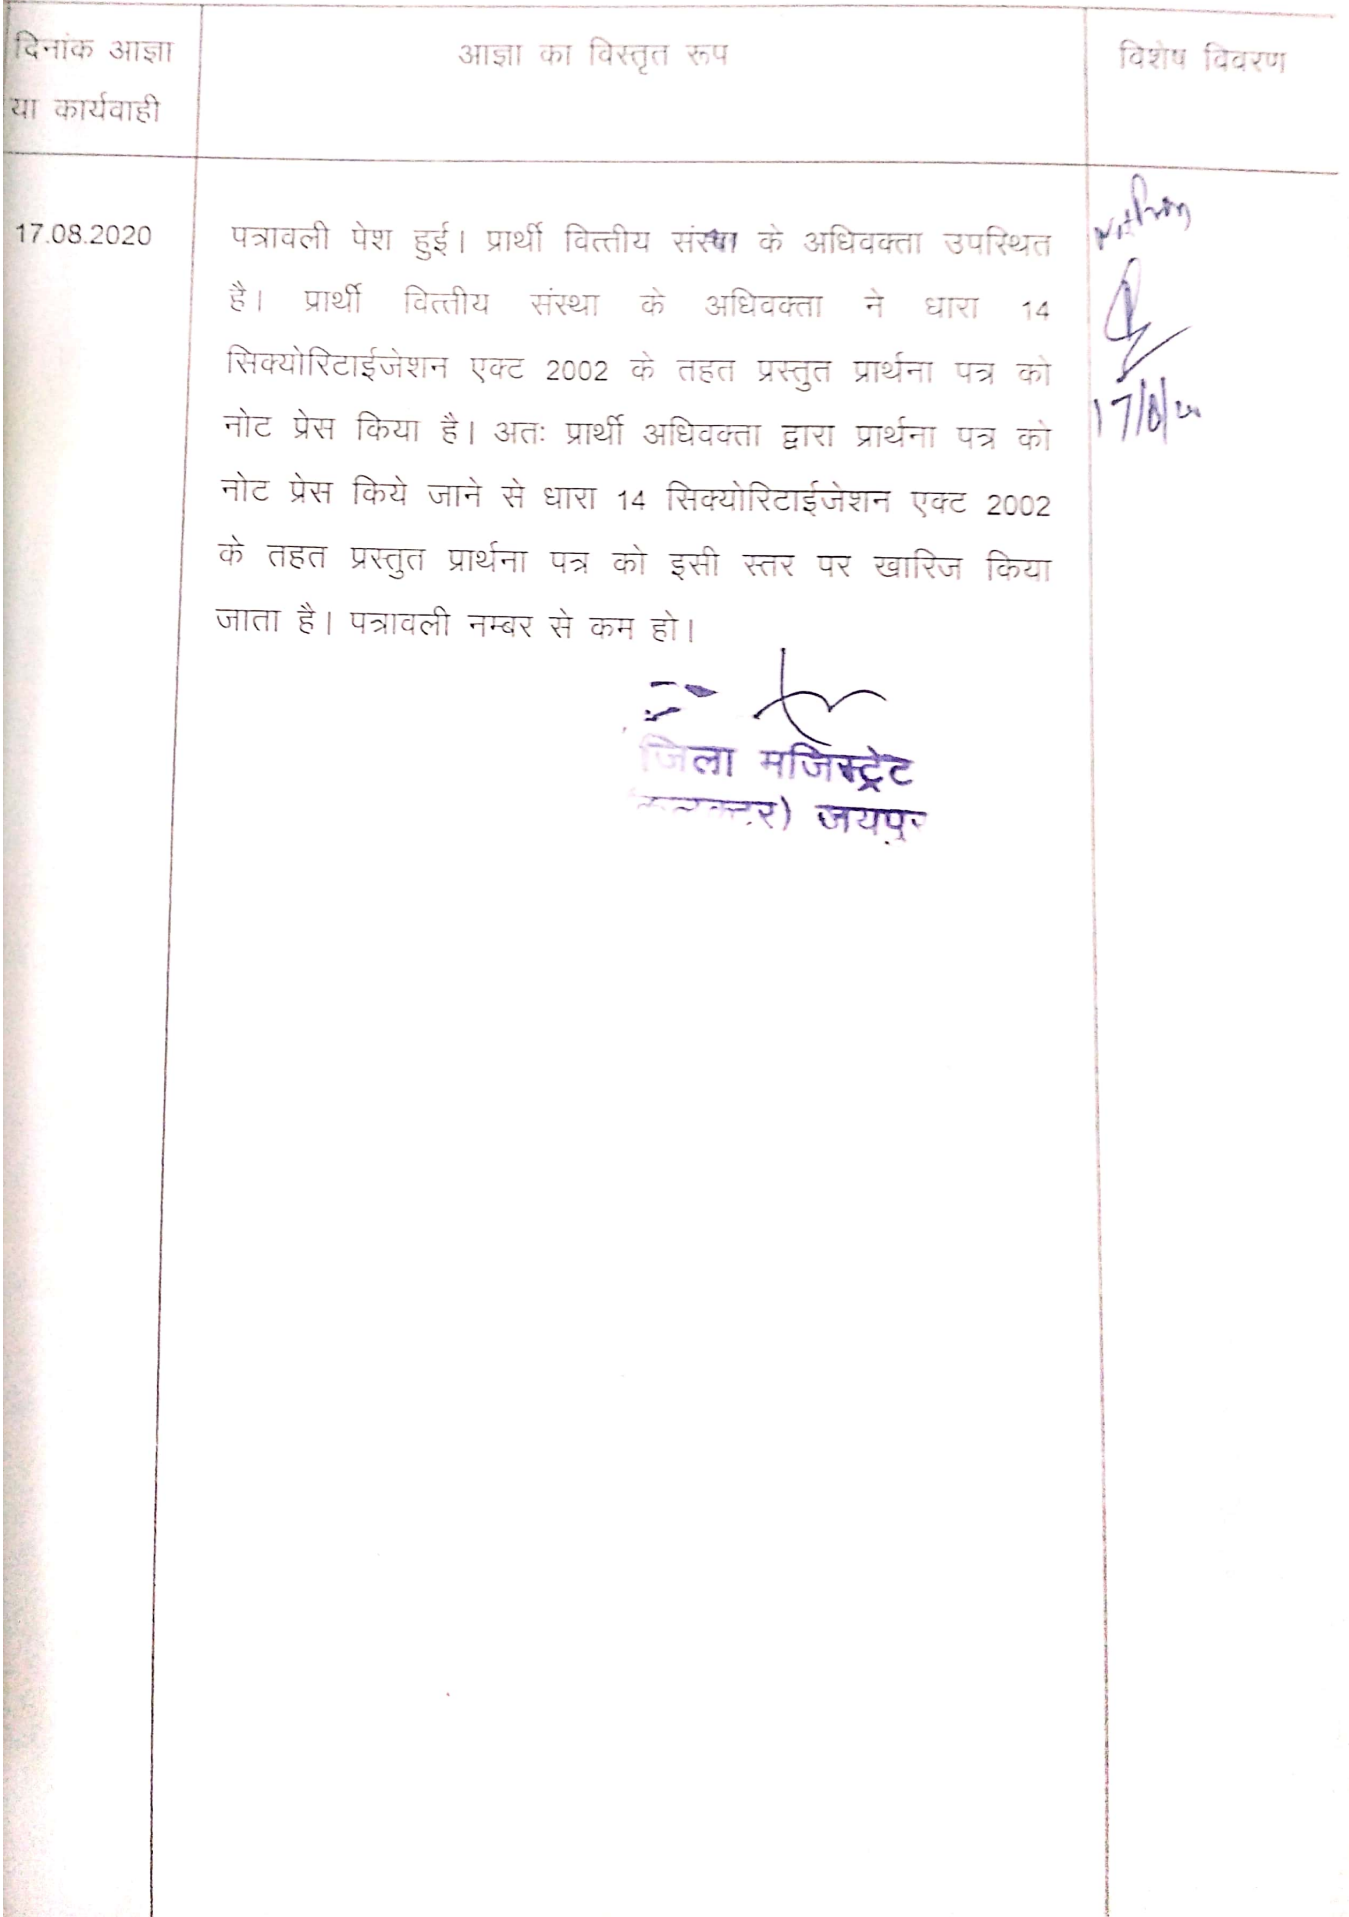 दिनांक आज्ञा
या कार्यवाही
आज्ञा का विस्तृत रूप
विशेष विवरण
17.08.2020
पत्रावली पेश हुई। प्रार्थी वित्तीय संस्था के अधिवक्ता उपस्थित
है। प्रार्थी वित्तीय संस्था के अधिवक्ता ने धारा 14
सिक्योरिटाईजेशन एक्ट 2002 के तहत प्रस्तुत प्रार्थना पत्र को
नोट प्रेस किया है। अतः प्रार्थी अधिवक्ता द्वारा प्रार्थना पत्र को
नोट प्रेस किये जाने से धारा 14 सिक्योरिटाईजेशन एक्ट 2002
के तहत प्रस्तुत प्रार्थना पत्र को इसी स्तर पर खारिज किया
जाता है। पत्रावली नम्बर से कम हो।
जिला मजिस्ट्रेट
जयपुर